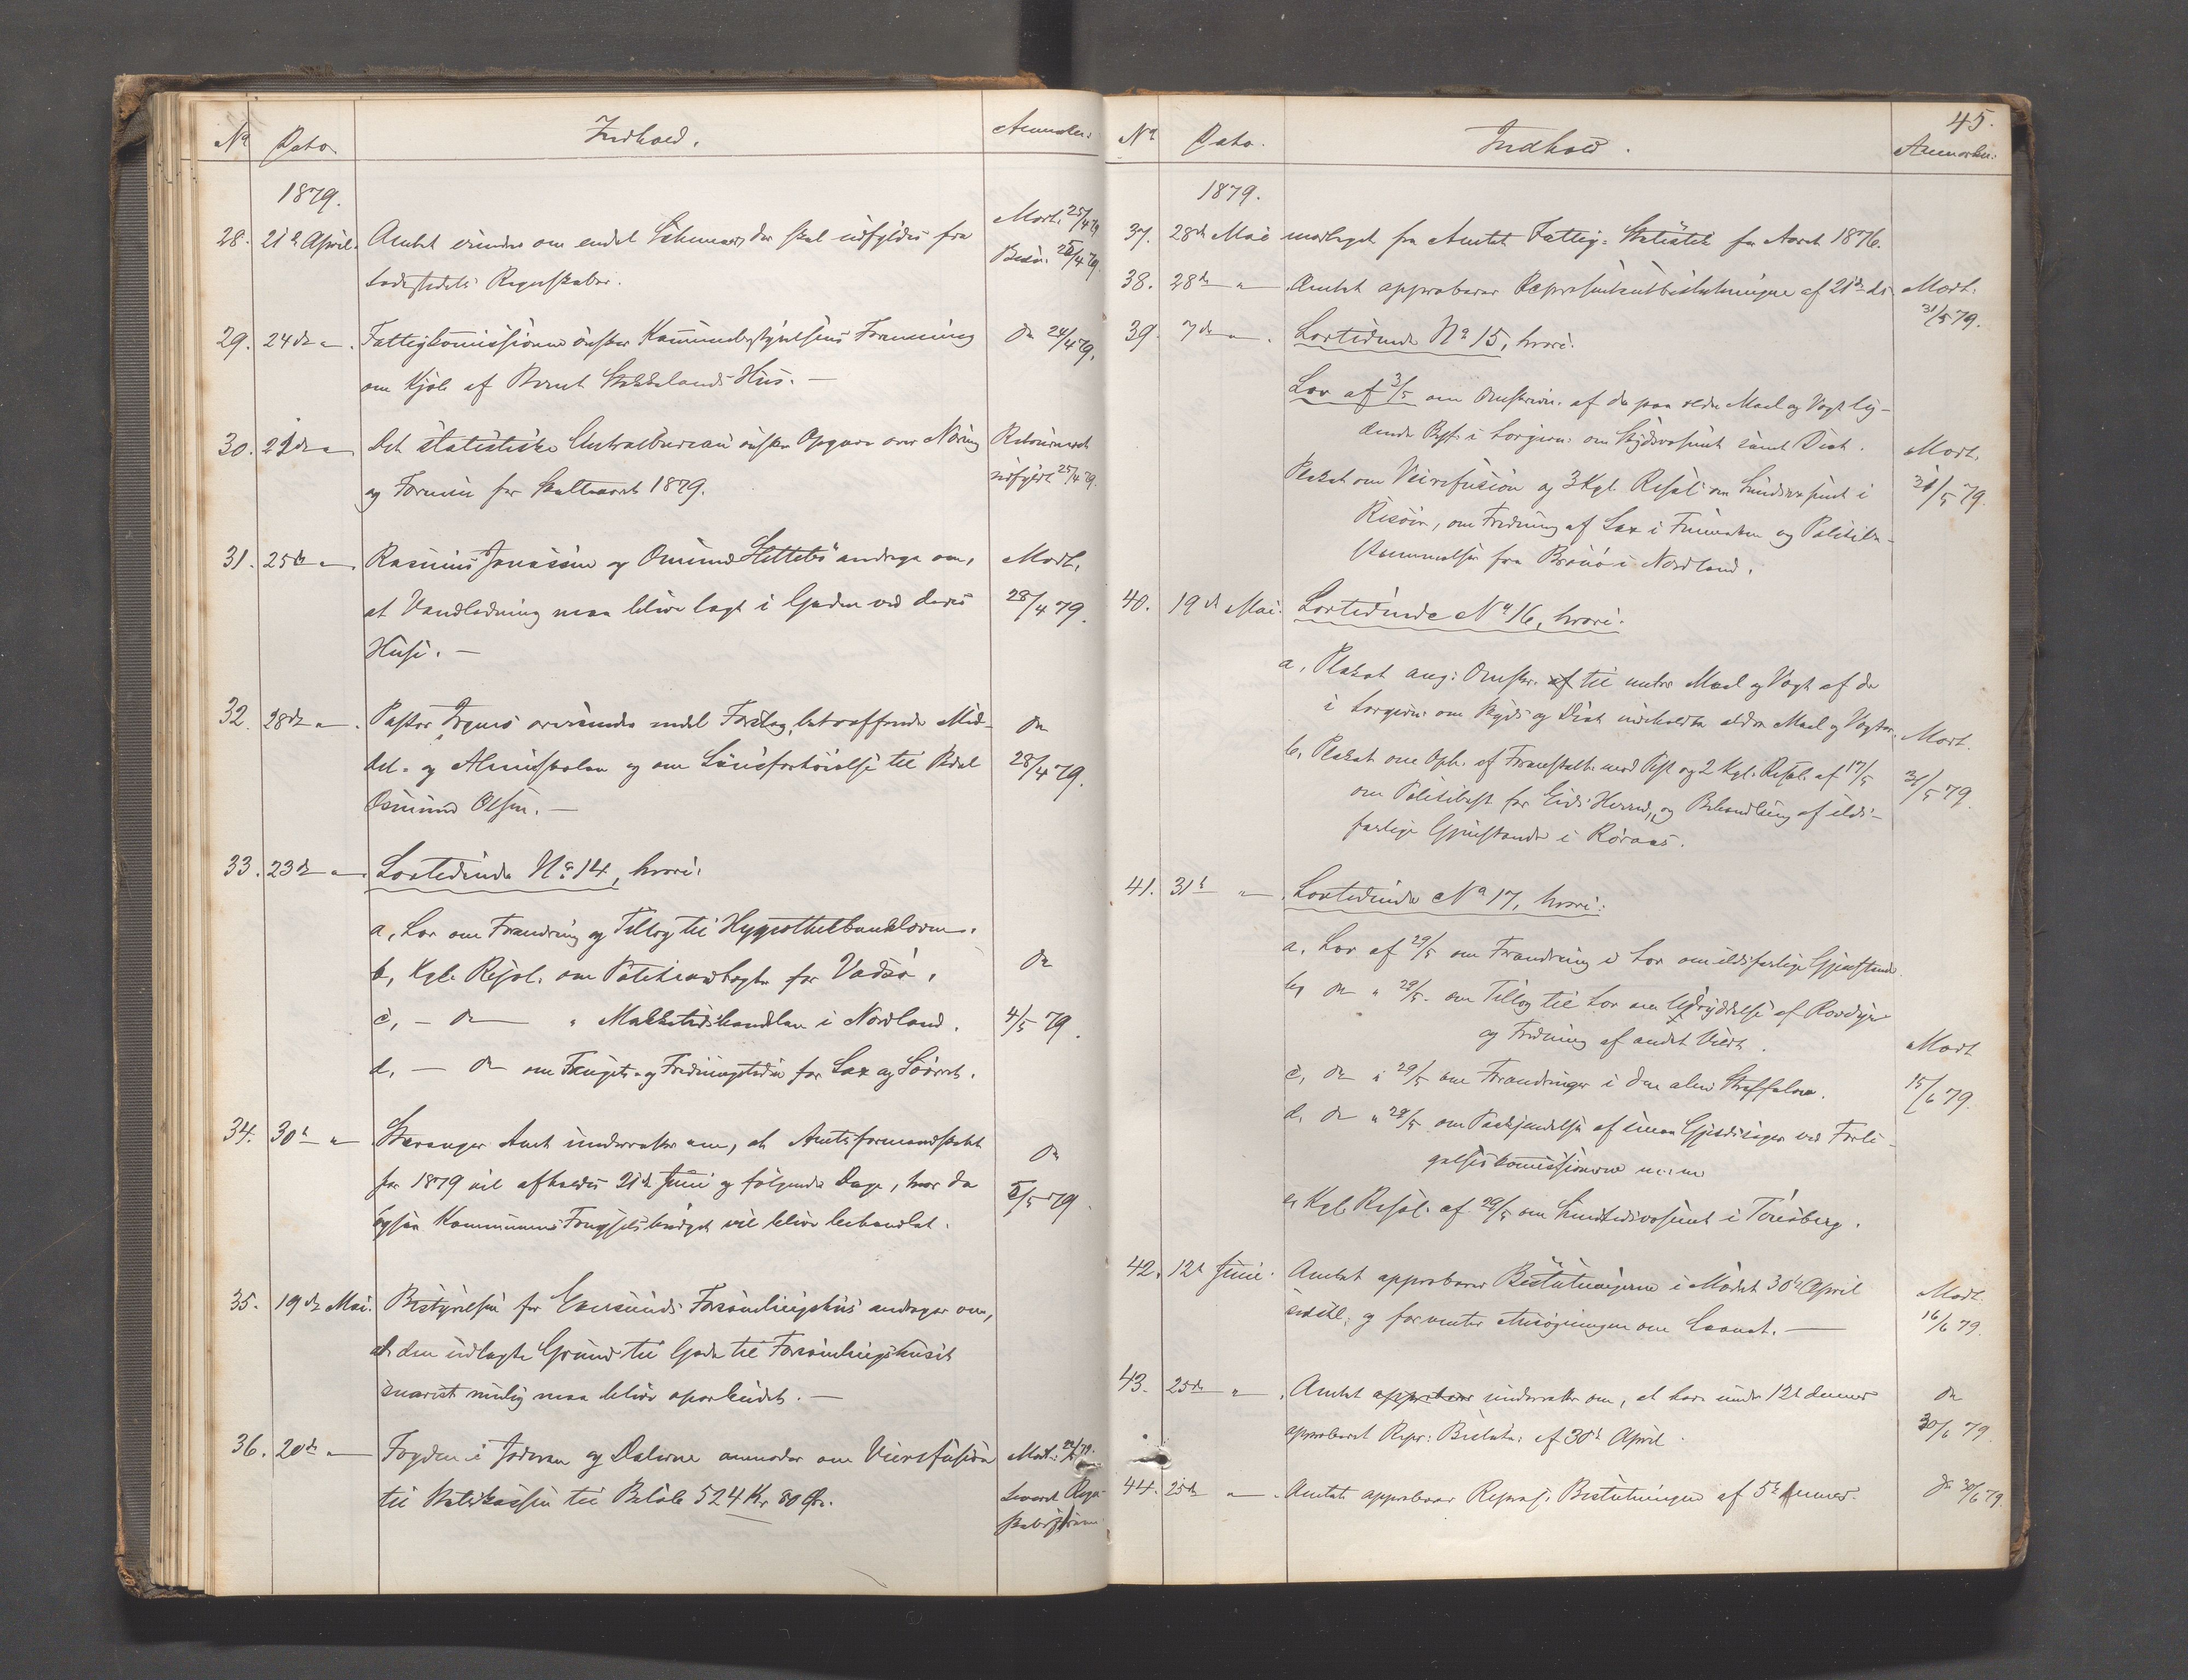 No Dato Indhold. Anmærkn:
1879.
28. 21de April. Amtet minder om endel Schemaer, der skal udfyldes fra Modt. 25/4 79
Ladestedets Regnskaber. Besv. 26/4 79.
29. 24de " Fattigkomissionen ønsker Kommunebestyrelsens Formening Do 24/4 79.
om Kjøb af Berent Hus. —
30. 21de " Det statistiske Centralbureau ønsker Opgave over Næring Retourneret
og Formue for Skatteaaret 1879. udfyldt 25/4 79.
31. 25de " Rasmus Jonassen og Omund andrage om, Modt.
at Vandledning maa blive lagt i Gaden ved deres 28/4 79.
Huse. —
32. 28de " Pastor oversender endel Forslag, betræffende Mid- Do
del- og Almueskolen og om Lønsforhøielse til 28/4 79.
Osmund Olsen. —
33. 23de " Lovtidende No 14, hvori:
a, Lov om Forandring og Tillæg til Hypothekbankloven.
b, Kgl. Resol. om Politivedtægter for Vadsø. Do
c, — Do — " Makketidshandlen i Nordland. 4/5 79.
d, — Do om Fangst- og Fredningstiden for Lax og Søørret.
34. 30te " Stavanger Amt underretter om, at Amtsformandskabet Do
for 1879 vil afholdes 21de Juni og følgende Dage, hvor da 5/5 79.
ogsaa Kommunens Fængselsbudget vil blive behandlet.
35. 19de Mai. Bestyrelsen for Egersunds Forsamlingshus andrager om,
at den udlagte Grund til Gade til Forsamlingshuset
snarest mulig maa blive oparbeidet. —
36. 20de " Fogden i Jæderen og Dalerne anmoder om Veirefusion Modt: 22/5 79.
til Statskassen til Beløb 524 Kr 80 Øre. Leveret Regn-
skabsføreren.
45.
No Dato. Indhold. Anmærkn:
1879.
37. 28de Mai modtaget fra Amtet Fattig-Statistik for Aaret 1876.
38. 28de " Amtet approberer Repræsentantbeslutningen af 21de ds. Modt.
31/5 79.
39. 7de " Lovtidende No 15, hvori:
Lov af 3/5 om Omskrivn. af de paa ældre Maal og Vægt ly-
dende Best. i Lovgivn: om Skydsvæsenet samt Diæt. Modt.
Plakat om Veirefusion og 3 Kgl. Resol. om Sundhedsvæsenet i 31/5 79.
Risøer, om Fredning af Lax i Finmarken og Politibe-
stemmelser fra Brønø i Nordland.
40. 19de Mai. Lovtidende No 16, hvori:
a, Plakat ang: Omskr. af til metr. Maal og Vægt af de
i Lovgivn: om Skyds og Diæt indeholdte ældre Maal og Vægter. Modt.
b, Plakat om Oph. af Foranstalt. mod Pest og 2 Kgl. Resol. af 17/5 31/5 79.
om Politibest. for Eids Herred, og Behandling af ilds-
farlige Gjenstande i Røraas.
41. 31te " Lovtidende No 17, hvori:
a, Lov af 29/5 om Forandring i Lov om ildsfarlige Gjenstande.
b, Do " 29/5 om Tillæg til Lov om Udryddelse af Rovdyr
og Fredning af andet Vildt. Modt
c, Do " 29/5 om Forandringer i den alm: Straffelov. 15/6 79.
d, Do " 29/5 om Paakjendelse af smaa Gjældssager ved Forli-
gelseskomissionerne m. m
e, Kgl. Resol. af 29/5 om Sundhedsvæsenet i Tønsberg.
42. 12te Juni. Amtet approberer Beslutningerne i Mødet 30te April Modt.
sidstl. og forventer Ansøgningen om Laanet. — 16/6 79.
43. 25de " Amtet approberer underretter om, at have under 12te dennes Do
approberet Repr: Beslutn: af 30te April. 30/6 79.
44. 25de " Amtet approberer Repræs. Beslutningen af 5te dennes. Do 30/6 79.